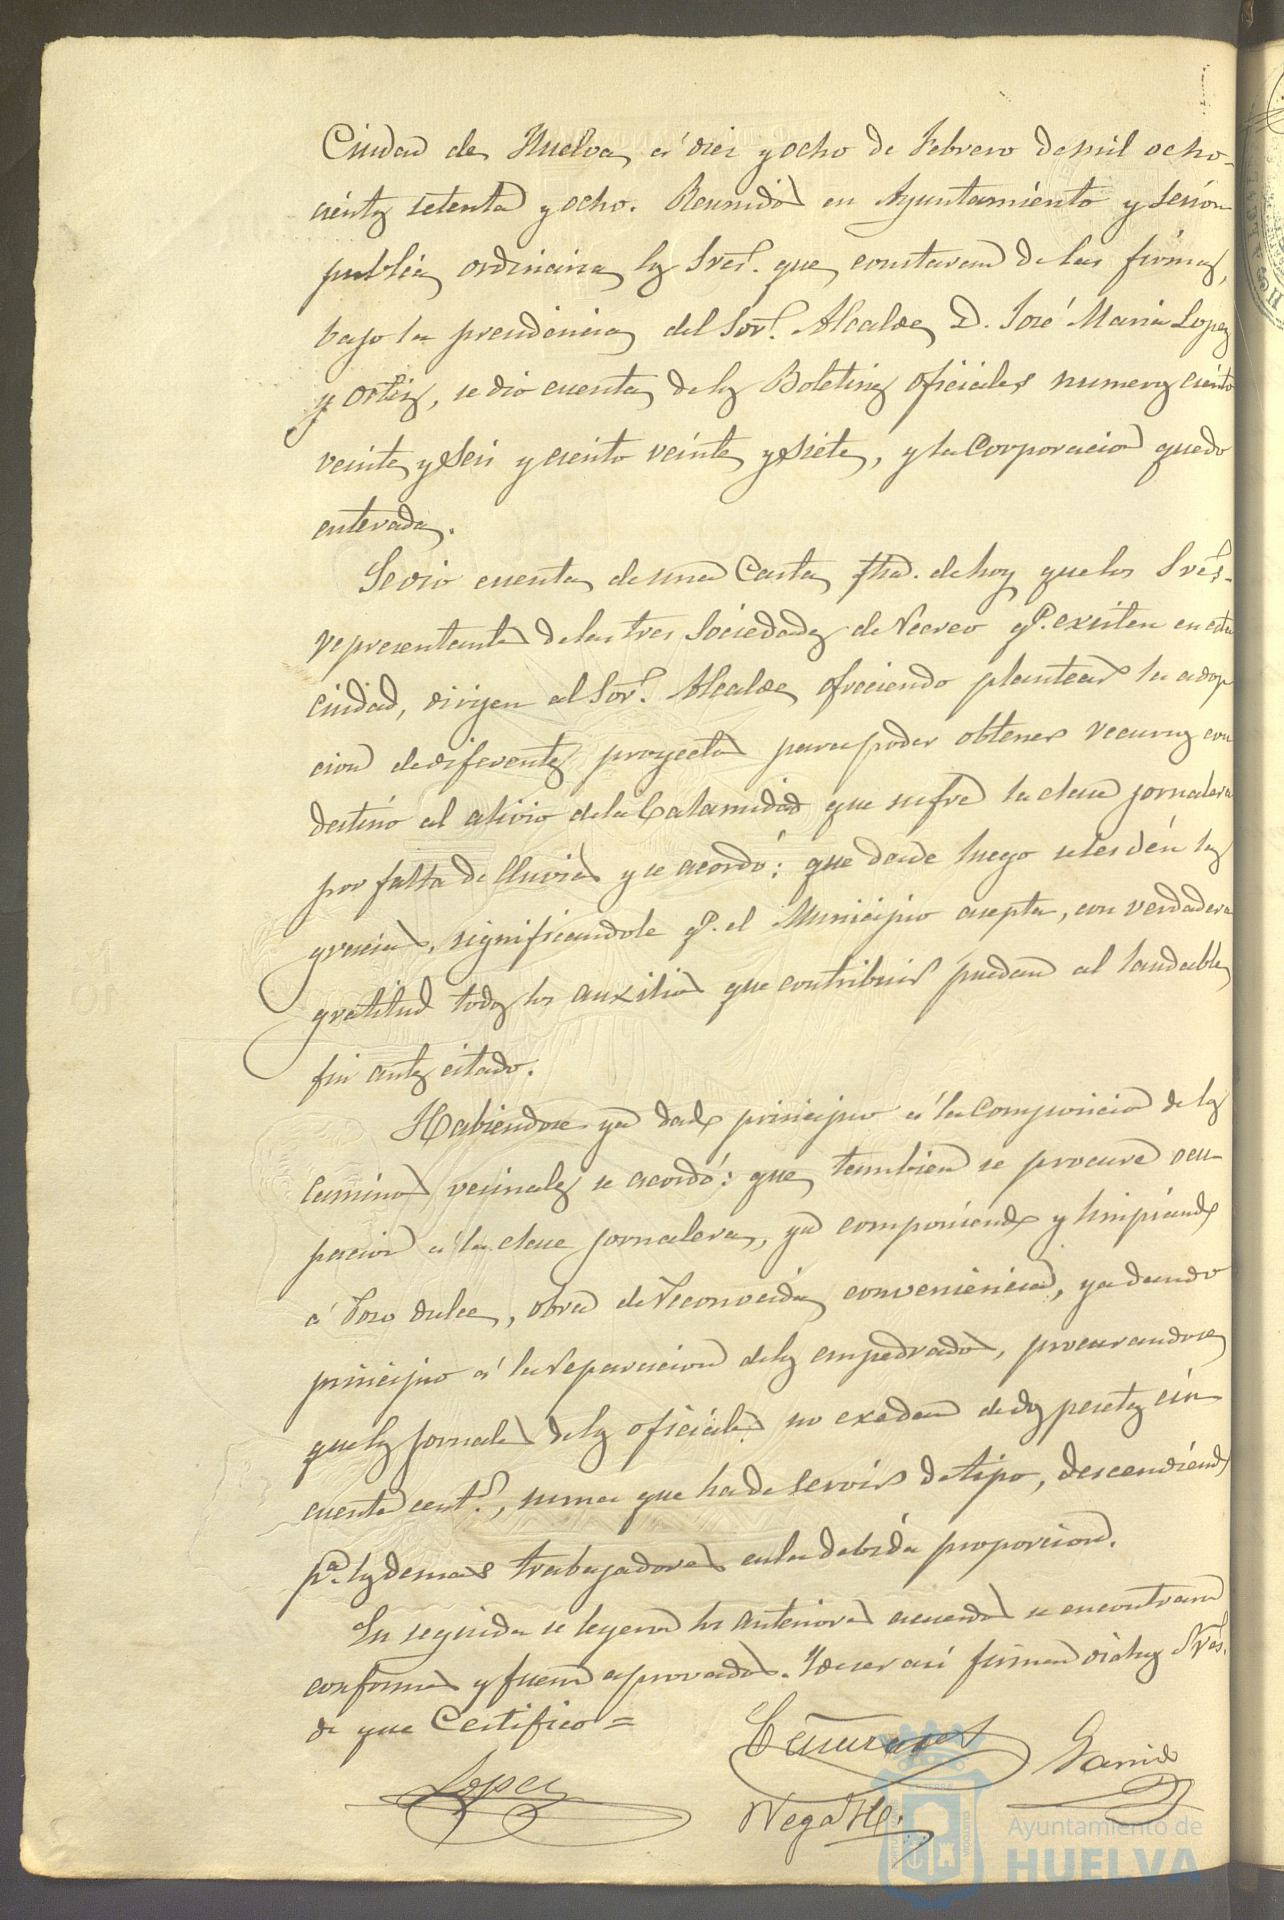 Ciudad de Huelva, á diez y ocho de Febrero de mil ocho-
cientos setenta y ocho. Reunidos en Ayuntamiento y Sesión
publica ordinaria los Sres. que constaran de las firmas,
bajo la presidencia del Sor. Alcalde D. José Maria Lopez
y Ortiz, se dio cuenta de los Boletines oficiales numeros ciento
veinte y seis y ciento veinte y siete, y la Corporacion quedo
enterada.
Se dio cuenta de una Carta fha. de hoy que los Sres.
representantes de las tres Sociedades de Recreo qe. existen en esta
Ciudad, dirijen al Sor. Alcalde, ofreciendo plantear la adop
cion de diferentes proyectos para poder obtener recursos con
destino al alivio de la Calamidad que sufre la clase jornalera
por falta de lluvias y se acordó: que desde luego se les dén las
gracias, significandole qe. el Municipio acepta, con verdadera
gratitud todos los auxilios que contribuir puedan al laudable
fin antes citado.
Habiendose ya dado principio á la Composicion de los
Caminos vecinales se acordó: que tambien se procure ocu-
pacion á la clase jornalera, ya componiendo y limpiando
á Pozo dulce, obra de reconocida conveniencia, ya dando
principio á la reparacion de los empedrados, procurandose
que los jornales de los oficiales no exedan de dos pesetas cin
cuenta cents., suma que ha de servir de tipo, descendiendo
pa. los demas trabajadores en la debida proporcion.
En seguida se leyeron los anteriores acuerdos se encontraron
conformes y fueron aprovados. Y de ser asi firman dichos Sres.
de que Certifico =
Lopez
Garrido
Vega H.
Ayuntamiento de
HUELVA